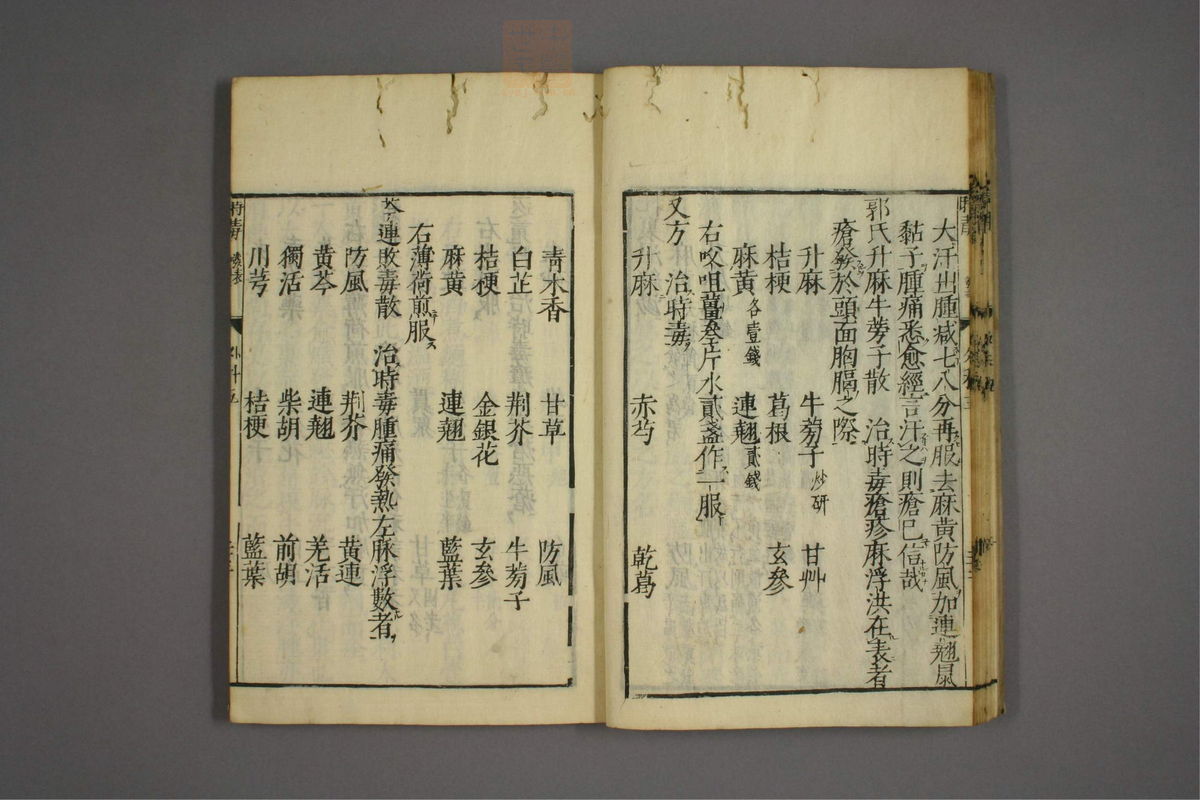 大汗出腫減七八分再服去麻黃防風加連翹鼠
黏子腫痛悉愈經言汗之則瘡已信哉
郭氏升麻牛蒡子散 治時毒瘡疹麻浮洪在表者
瘡發於頭面胸膈之際
升麻 牛蒡子炒研 甘艸
桔梗 葛根 玄參
麻黃各壹錢 連翹貳錢
右㕮咀薑叄片水貳盞作一服
又方 治時毒
升麻 赤芍 乾葛
青木香 甘草 防風
白芷 荆芥 牛蒡子
桔梗 金銀花 玄參
麻黃 連翹 藍葉
右薄荷煎服
芩連敗毒散 治時毒腫痛發熱左脉浮數者
防風 荆芥 黃連
黃芩 連翹 羗活
獨活 柴胡 前胡
川芎 桔梗 藍葉
外科五